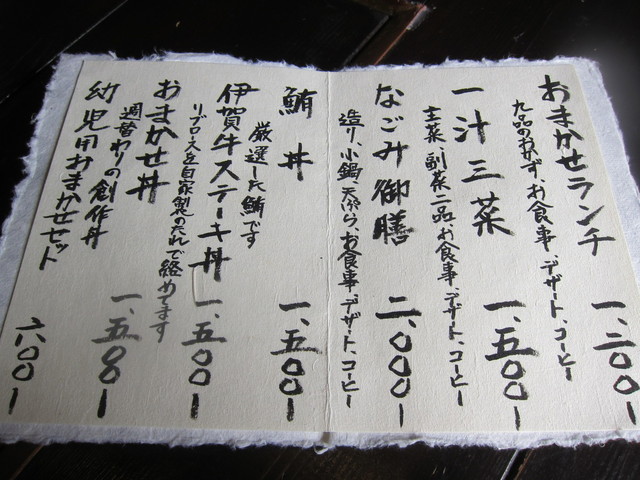 おまかせランチ 一、二〇〇ー
九品のおかず、お食事、デザート、コーヒー
一汁三菜 一、五〇〇ー
主菜、副菜二品、お食事、デザート、コーヒー
なごみ御膳 二、〇〇〇ー
造り、小鍋、天ぷら、お食事、デザート、コーヒー
鮪丼 一、五〇〇ー
厳選した鮪です
伊賀牛ステーキ丼 一、五〇〇ー
リブロースを自家製のたれで絡めてます
おまかせ丼 一、五〇ー
週替わりの創作丼
幼児用おまかせセット 六〇〇ー